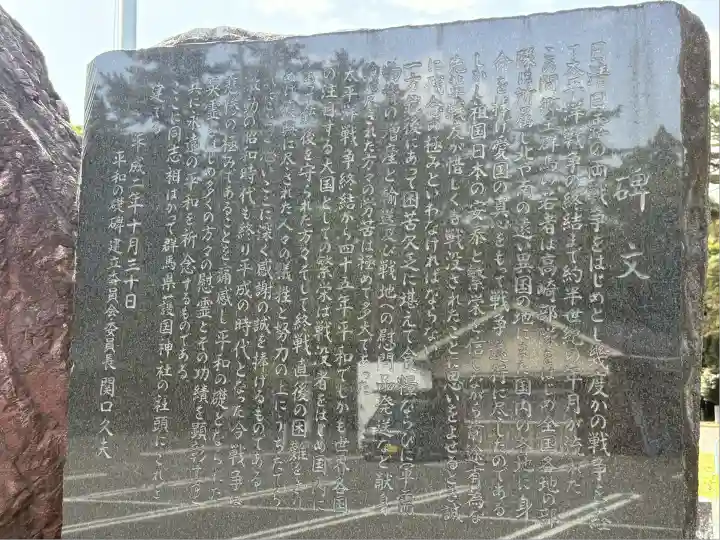 碑文
日清日露の両戦争をはじめとし幾度かの戦争を経
て太平洋戦争の終結まで約半世紀の年月が流れた
この間郷土群馬の若者は高崎部隊はじめ全国各地の部
隊に所属し北や南の遠い異国の地にまた国内の各地に身
命を捧げ愛国の真心をもって戦争遂行に尽したのである
しかし祖国日本の安泰と繁栄を信じながら前途有為な
戦友が惜しくも戦没されたことに思いをよせるとき誠
に痛恨の極みといわなければならない
一方銃後にあって困苦欠乏に堪えて食糧ならびに軍需
物資の増産と輸送及び戦地への慰問品発送など献身
された方々の労苦は極めて多大であった
太平洋戦争終結から四十五年平和でしかも世界各国
の注目する大国としての繁栄は戦没者をはじめ国のために
銃後を守られた方々そして終戦直後の困難を
復興に尽された人々の犠牲と努力の上にうちたてら
ここに深く感謝の誠を捧げるものである
激動の昭和時代も終り平成の時代となった今戦争は
悲惨の極みであることを痛感し平和の礎となられた
英霊はじめ多くの方々の慰霊とその功績を顕彰すると
共に永遠の平和を祈念するものである
ここに同志相はかって群馬県護国神社の社頭にこれを
建立す
平成二年十月三十日
平和の礎碑建立委員会委員長 関口久夫